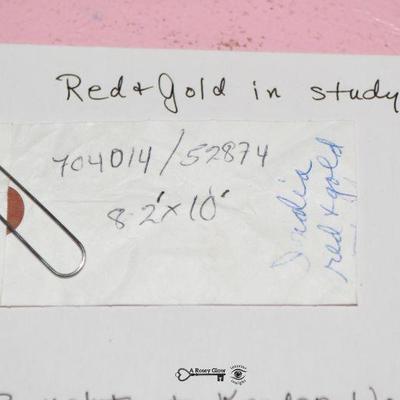 Red + Gold in study
704014/52874
8.2'x10'
India
red + gold
A Rosey Glow